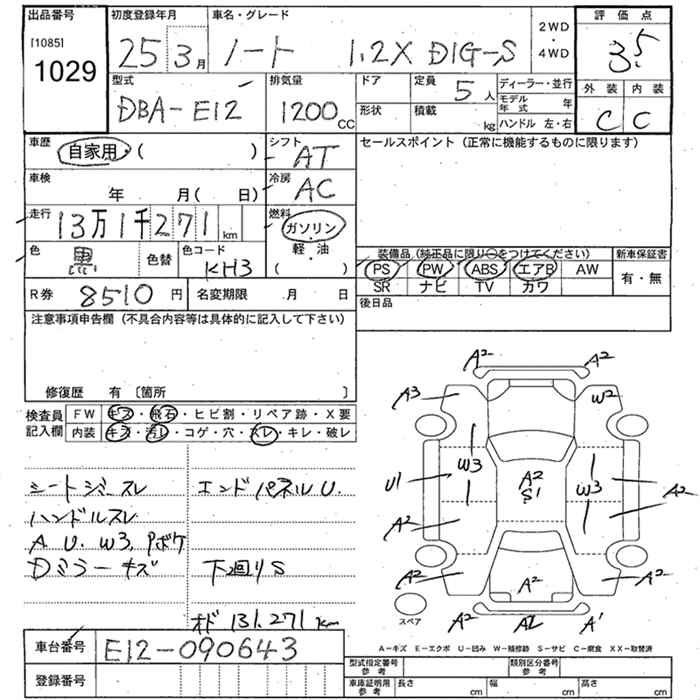 出品番号 初度登録年月 車名・グレード 2WD・4WD 評価点
[1085]
1029 25 3月 ノート 1.2X DIG-S 3.5
型式 排気量 ドア 定員 ディーラー・並行 外装 内装
DBA-E12 1200CC 5人 モデル年式 年 C C
形状 積載 kg ハンドル 左・右
車歴 自家用・( ) シフト AT セールスポイント(正常に機能するものに限ります)
車検 年 月( 日) 冷房 AC
走行 13万1千271km 燃料 ガソリン・軽・油 ( )
色 黒 色替 色コード KH3
装備品(純正品に限り○をつけてください) 新車保証書
PS PW ABS エアB AW 有・無
SR ナビ TV カワ
R券 8510円 名変期限 月 日 後日品
注意事項申告欄(不具合内容等は具体的に記入して下さい)
修復歴 有 〔箇所 〕
検査員記入欄 FW キズ・飛石・ヒビ割・リペア跡・X要
内装 キズ・汚レ・コゲ・穴・スレ・キレ・破レ
シートジミスレ エンドパネルU.
ハンドルスレ
A U. W3. Pボケ
Dミラーキズ 下廻りS
オド 131,271km
A2 A2
A3 W2
W3
U1 A2 W3 A2
S1
A2
A2 A2 A2
スペア A2 A2 A1
車台番号 E12-090643
A-キズ E-エクボ U-凹み W-補修跡 S-サビ C-腐食 XX-取替済
登録番号 型式指定番号 参考 類別区分番号 参考
車庫証明用 参考 長さ cm 幅 cm 高さ cm